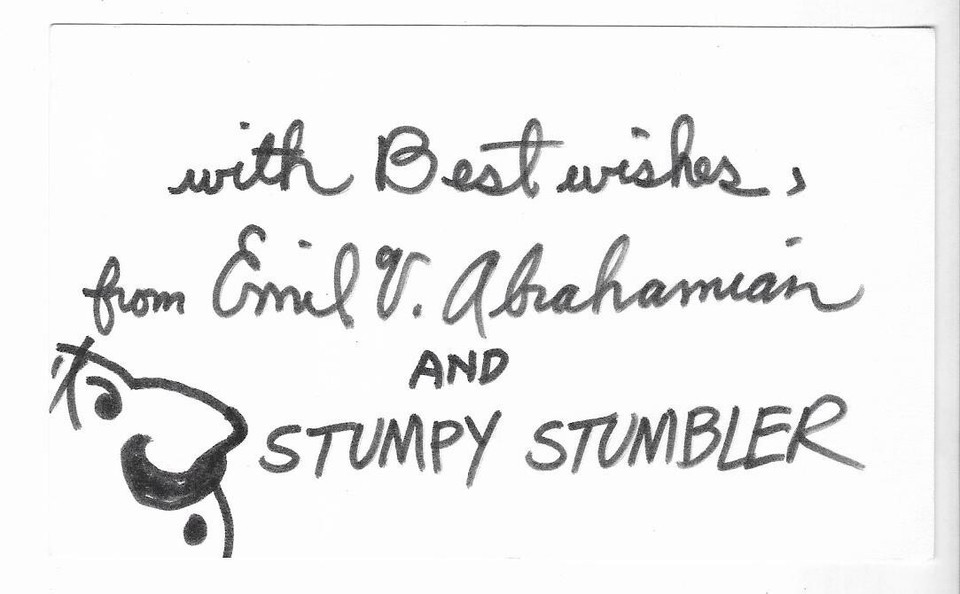 with Best wishes,
from Emil V. Abrahamian
AND
STUMPY STUMBLER